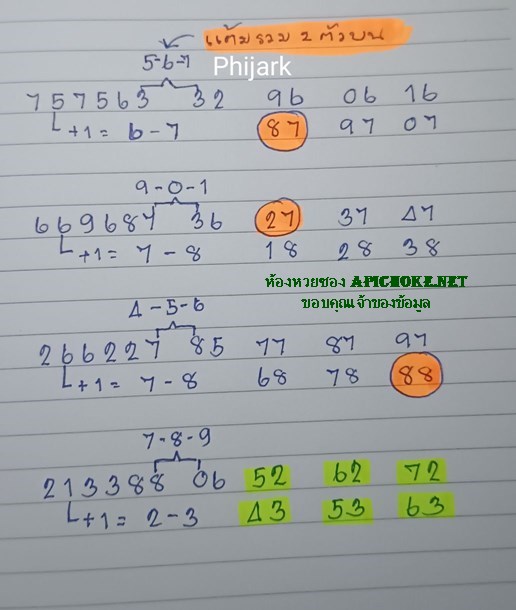 แต้มรวม 2 ตัวบน
5-6-7
Phijark
757563 32 96 06 16
+1= 6-7 87 97 07
9-0-1
669687 36 27 37 47
+1= 7-8 18 28 38
ห้องหวยซอง APICHOKE.NET
ขอบคุณเจ้าของข้อมูล
4-5-6
266227 85 77 87 97
+1= 7-8 68 78 88
7-8-9
213388 06 52 62 72
+1= 2-3 43 53 63